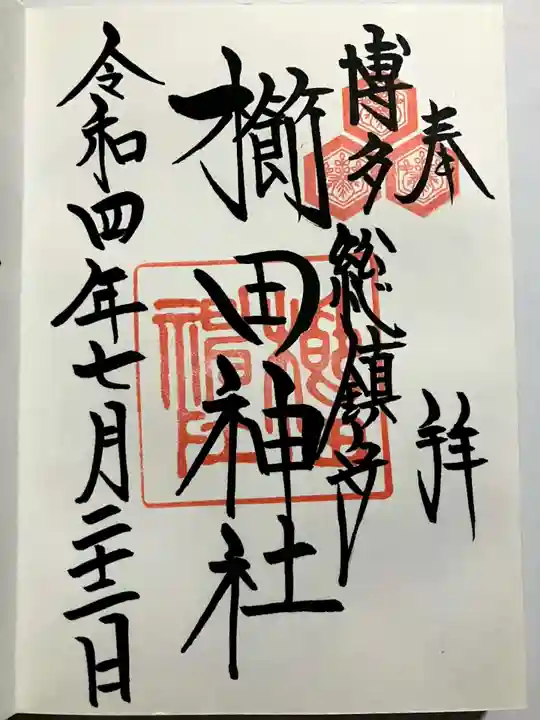 奉拝
博多総鎮守
櫛田神社
令和四年七月二十二日